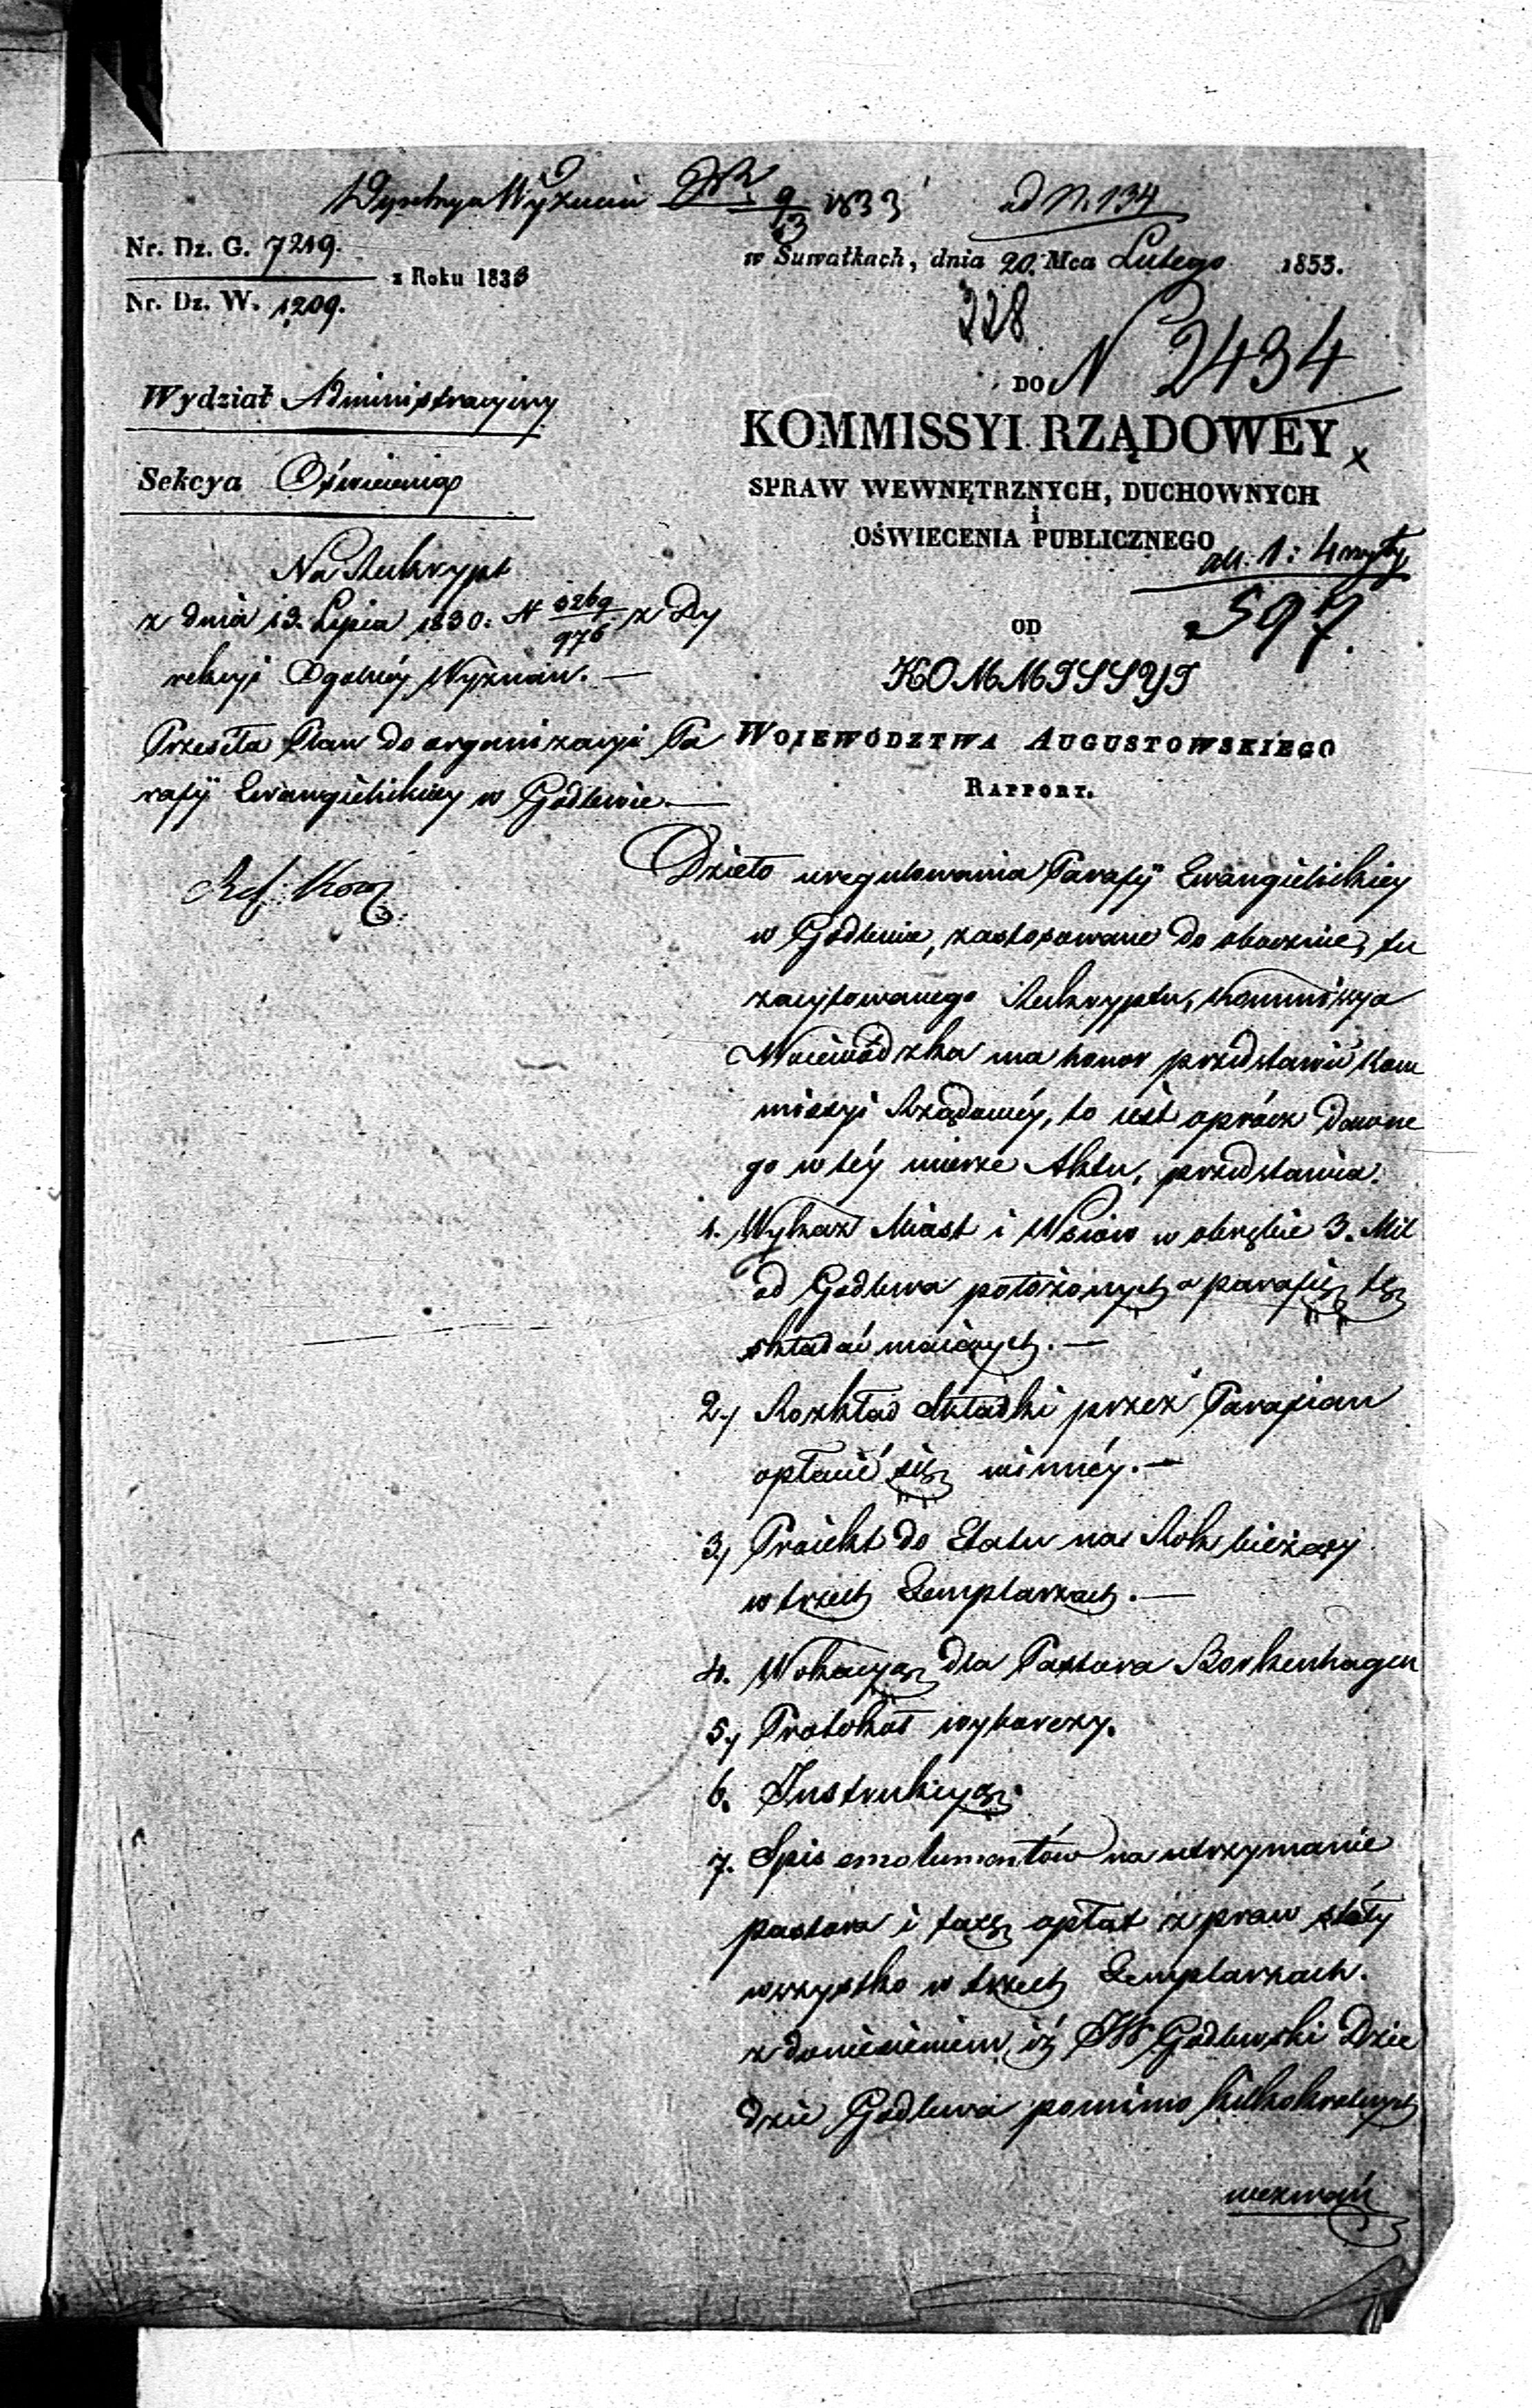 Dyrekcya Wyznań 9/3 1833 ad N. 134
Nr. Dz. G. 7219.
z Roku 1833
Nr. Dz. W. 1209.
w Suwałkach, dnia 20. Mca Lutego 1833.
328
N 2434
Wydział Administracyiny
Sekcya Oświecenia
DO
KOMMISSYI RZĄDOWEY
SPRAW WEWNĘTRZNYCH, DUCHOWNYCH
i
OŚWIECENIA PUBLICZNEGO
all. 1 : 4 zszyty
597.
OD
KOMMISSYI
WOIEWÓDZTWA AUGUSTOWSKIEGO
RAPPORT.
Na Reskrypt
z dnia 13. Lipca 1830. N 5269/976 z Dy
rekcyi Ogólnéy Wyznań. —
Przeseła Plan do organizacyi Pa
rafÿ Ewangielickiey w Godlewie. —
Ref: Kom
Dzieło uregulowania Parafÿ Ewangielickiey
w Godlewie, zastosowane do obocznie, tu
zacytowanego Reskryptu, Kommissya
Woiewódzka ma honor przedstawić Kom
missyi Rządowéy, to iest oprócz dawne
go w téy mierze Aktu, przedstawia.
1. Wykaz Miast i Wsiów w obrębie 3. Mil
od Godlewa położonych a parafię tę
składać maiących. —
2.) Rozkład składki przez Parafian
opłacić się winnéy. —
3.) Proiekt do Etatu na Rok bieżący
w trzech Exemplarzach. —
4. Wokacyą dla Pastora Borkenhagen
5.) Protokół wyborczy.
6. Instrukcyą.
7. Spis emolumentów na utrzymanie
pastora i taxę opłat z praw stuły
wszystko w trzech Exemplarzach.
z doniesieniem, iż JW Godlewski Dzie
dzic Godlewa pomimo kilkokrotnych
wezwań